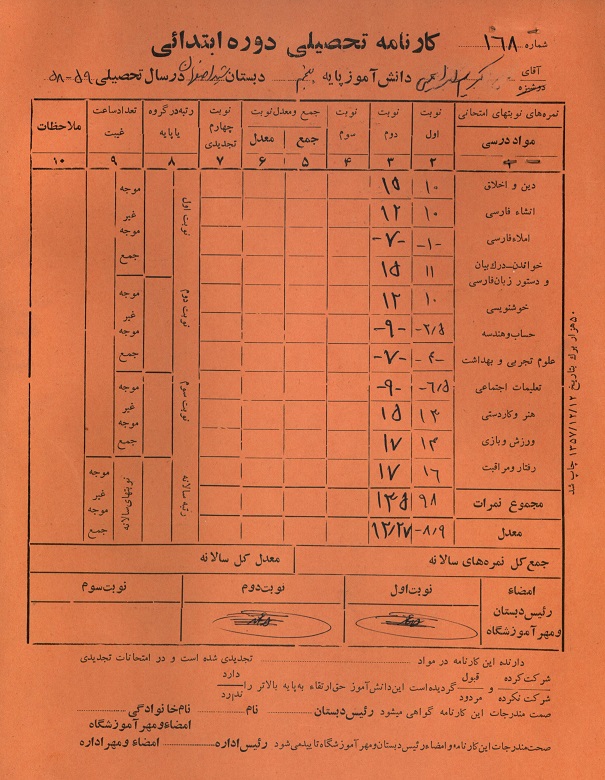 شماره ۱۶۸
کارنامه تحصیلی دوره ابتدائی
آقای
دوشیزه
دانش آموز پایه پنجم دبستان در سال تحصیلی ۵۹-۵۸
نمره‌های نوبتهای امتحانی نوبت اول نوبت دوم نوبت سوم جمع و معدل نوبت نوبت چهارم تجدیدی رتبه در گروه یا پایه تعداد ساعت غیبت ملاحظات
مواد درسی جمع معدل
۲ ۳ ۴ ۵ ۶ ۷ ۸ ۹ ۱۰
دین و اخلاق ۱۰ ۱۵
انشاء فارسی ۱۰ ۱۲
املاء فارسی -۱- -۷-
خواندن-درک بیان و دستور زبان فارسی ۱۱ ۱۵
خوشنویسی ۱۰ ۱۲
حساب و هندسه -۲/۵ -۹-
علوم تجربی و بهداشت -۴- -۷-
تعلیمات اجتماعی -۶/۵ -۹-
هنر و کاردستی ۱۴ ۱۵
ورزش و بازی ۱۴ ۱۷
رفتار و مراقبت ۱۶ ۱۷
مجموع نمرات ۹۸ ۱۳۵
معدل -۸/۹ ۱۲/۲۷
نوبت اول موجه غیر موجه جمع
نوبت دوم موجه غیر موجه جمع
نوبت سوم موجه غیر موجه جمع
رتبه سالانه نوبتهای سالانه موجه غیر موجه جمع
جمع کل نمره‌های سالانه معدل کل سالانه
امضاء رئیس دبستان و مهر آموزشگاه نوبت اول نوبت دوم نوبت سوم
دارنده این کارنامه در مواد تجدیدی شده است و در امتحانات تجدیدی
شرکت کرده و قبول گردیده است این دانش آموز حق ارتقاء به پایه بالاتر را دارد
شرکت نکرده مردود ندارد
صحت مندرجات این کارنامه گواهی میشود رئیس دبستان نام نام خانوادگی
امضاء و مهر آموزشگاه
صحت مندرجات این کارنامه و امضاء رئیس دبستان و مهر آموزشگاه تایید می شود رئیس اداره امضاء و مهر اداره
۵۰ هزار برگ بتاریخ ۱۳۵۷/۱۲/۱۲ چاپ شد